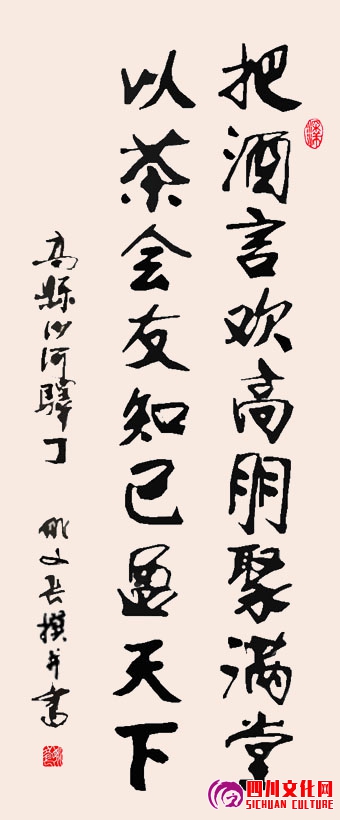 把酒言欢高朋聚满堂
以茶会友知己遍天下
高縣沙河驛丁 文长撰并書
四川文化网
SICHUAN CULTURE